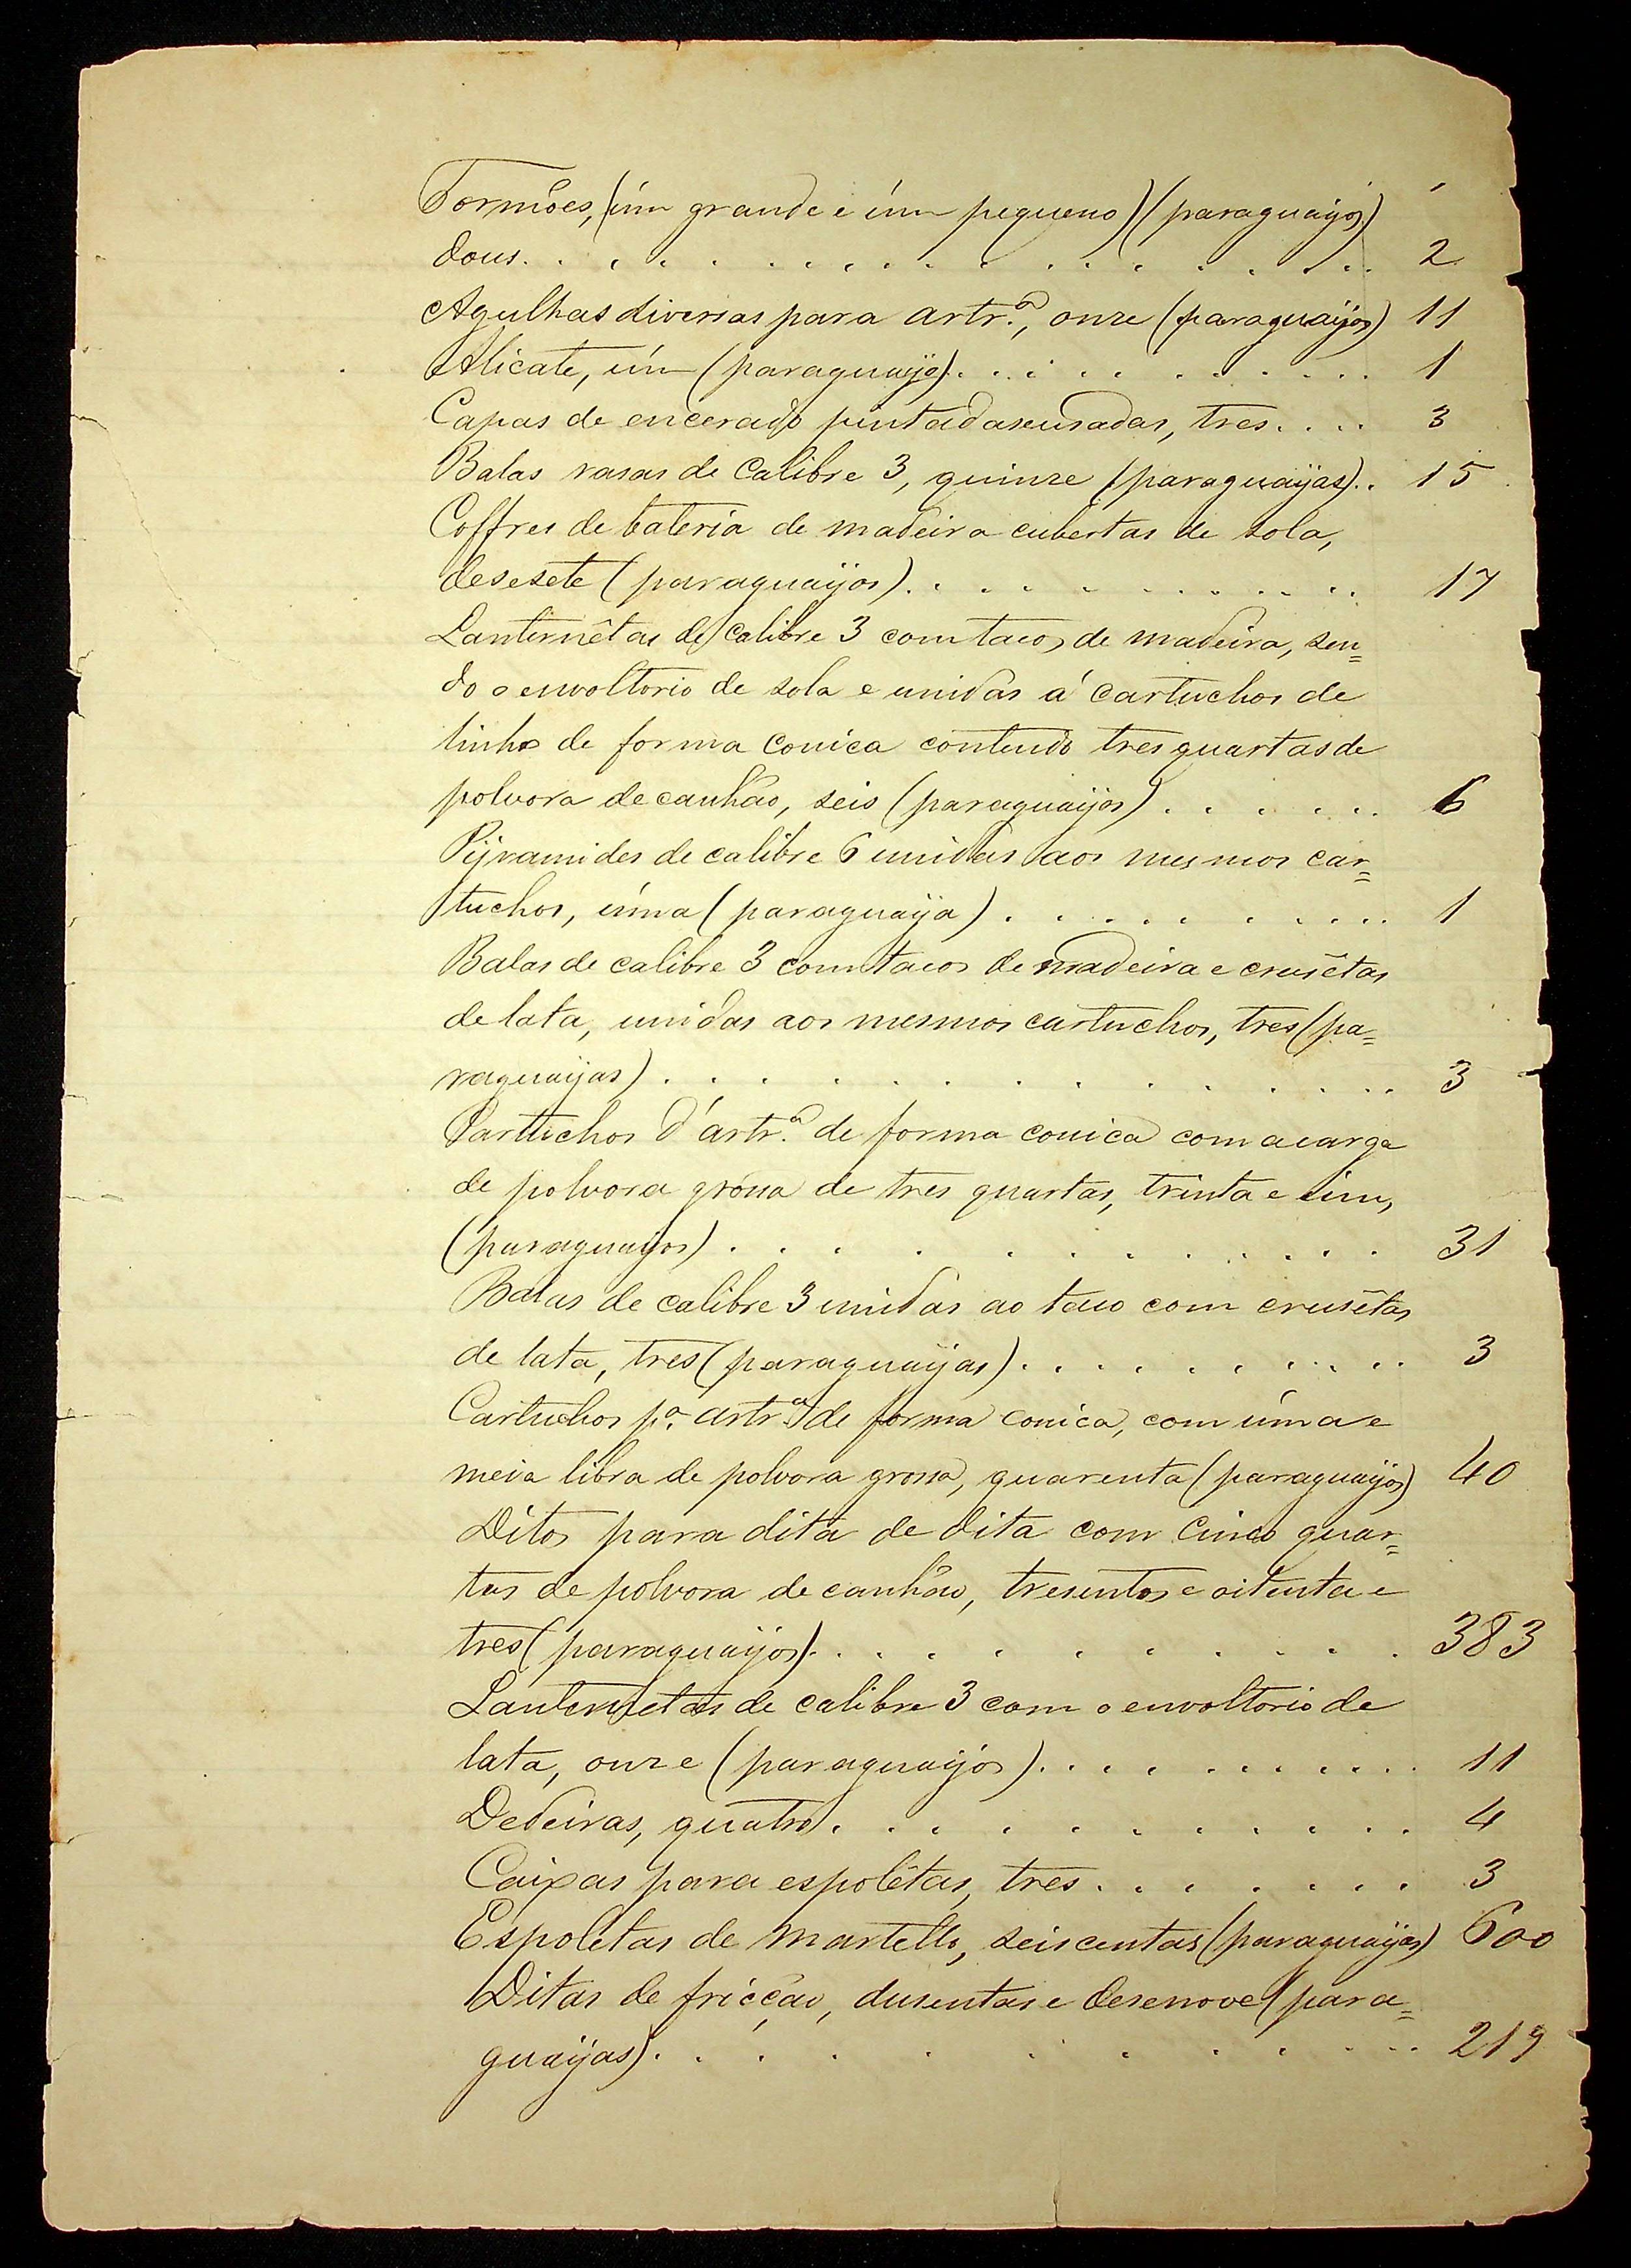 Formões, (úm grande e úm pequeno) (paraguaijos)
dous. . . . . . . . . . . . . . . . . . 2
Agulhas diversas para artr.ª, onze (paraguaijas) 11
Alicate, úm (paraguaijo). . . . . . . . . . . 1
Capas de encerado pintadas e usadas, tres. . . . 3
Balas rasas de Calibre 3, quinze (paraguaijas). . 15
Coffres de bateria de madeira cubertas de sola,
desesete (paraguaijos). . . . . . . . . . . 17
Lanternêtas de calibre 3 com tacos de madeira, sen=
do o envoltorio de sola e unidas á cartuchos de
linho de forma conica contendo tres quartas de
polvora de canhão, seis (paraguaijos) . . . . . . 6
Pijramides de calibre 6 unidas aos mesmos car=
tuchos, úma (paraguaija) . . . . . . . . . . 1
Balas de calibre 3 com tacos de madeira e crusêtas
de lata, unidas aos mesmos cartuchos, tres (pa=
raguaijas) . . . . . . . . . . . . . . 3
Cartuchos d'artr.ª de forma conica com a carga
de polvora grossa de tres quartas, trinta e úm,
(paraguaijos) . . . . . . . . . . . . . 31
Balas de calibre 3 unidas ao taco com crusêtas
de lata, tres (paraguaijas). . . . . . . . . . 3
Cartuchos p.ª artr.ª de forma conica, com úma e
meia libra de polvora grossa, quarenta (paraguaijos) 40
Ditos para dita de dita com cinco quar=
tas de polvora de canhão, tresentos e oitenta e
tres (paraguaijos). . . . . . . . . . . 383
Lanternetas de calibre 3 com o envoltorio de
lata, onze (paraguaijós). . . . . . . . . . . 11
Dedeiras, quatro. . . . . . . . . . . . 4
Caixas para espolêtas, tres. . . . . . . . 3
Espoletas de martello, seiscentas (paraguaijas) 600
Ditas de fricção, dusentas e desenove (para=
guaijas). . . . . . . . . . . . . 219